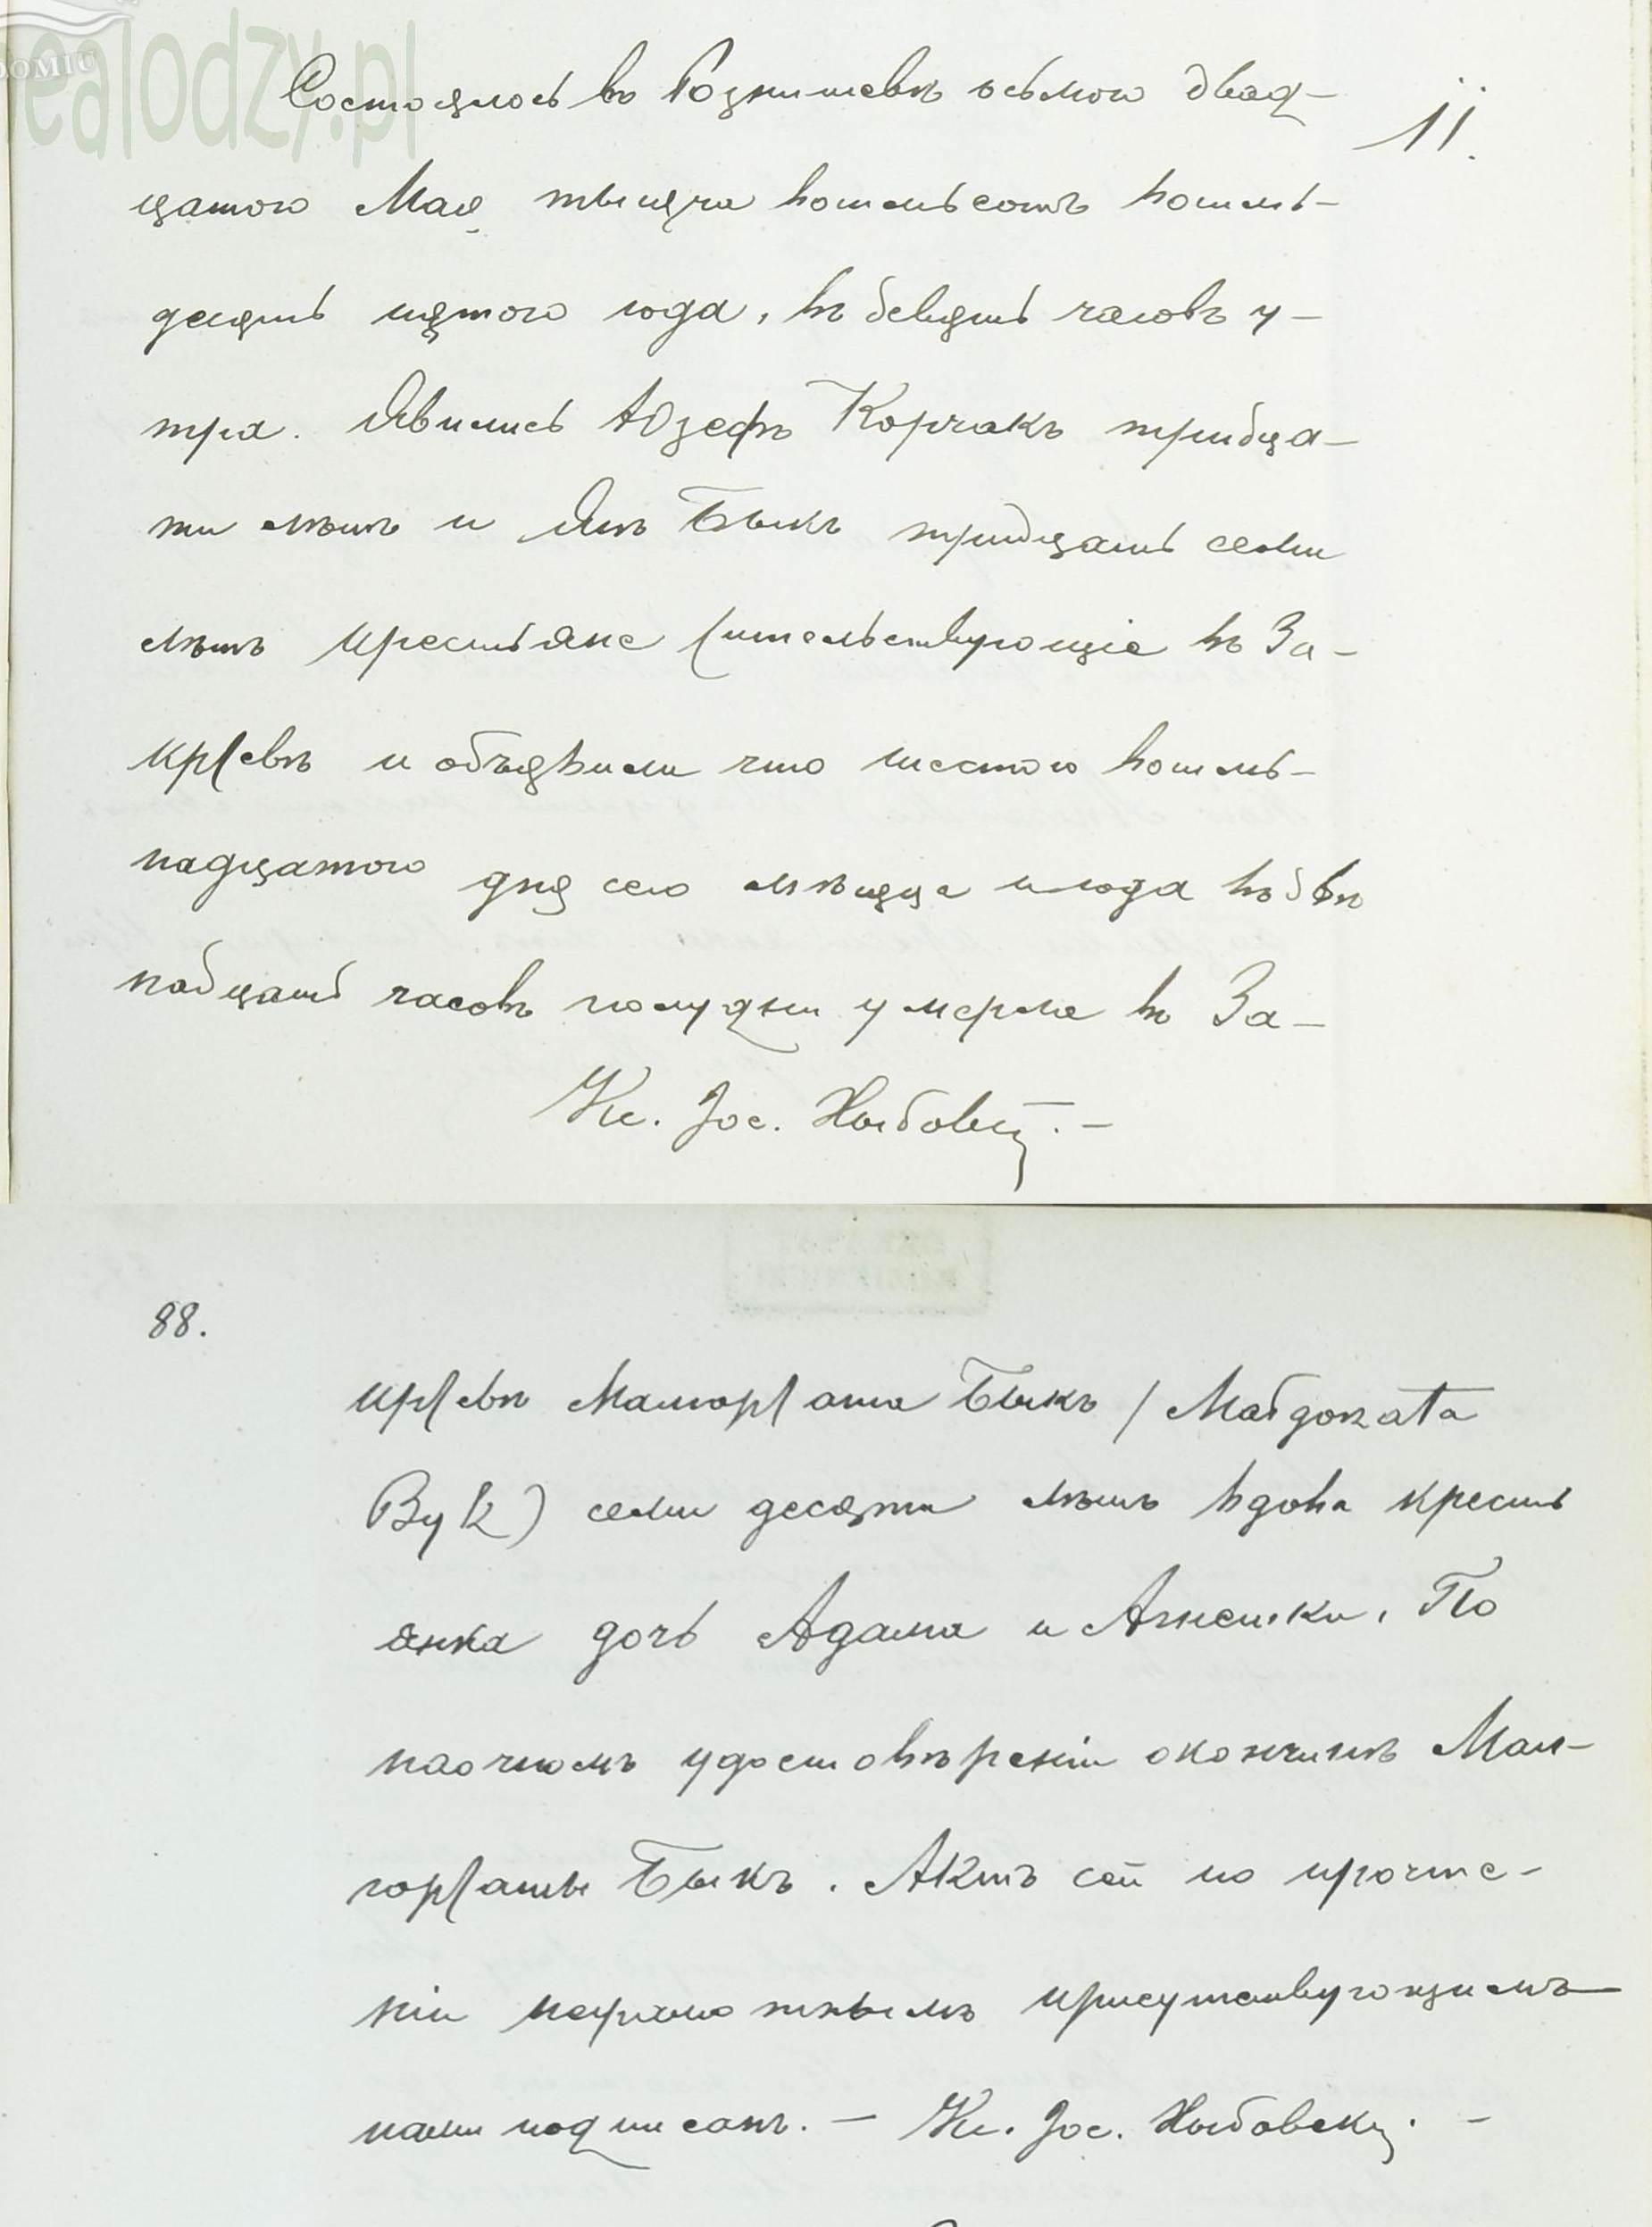 ealodzy.pl
DOMIU
Состоялось въ Рознишевѣ осьмого двад-
11.
цатого Мая тысяча восемьсотъ восемь-
десятъ пятого года, въ девять часовъ у-
тра. Явились Юзефъ Корчакъ тридца-
ти лѣтъ и Янъ Быкъ тридцать семи
лѣтъ крестьяне жительствующіе въ За-
кржевѣ и объявили что шестого восемь-
надцатого дня сего мѣсяца и года въ двѣ
надцать часовъ полудни умерла въ За-
Кс. Јос.
88.
кржевѣ Малгоржата Быкъ / Małgorzata
Byk) семидесяти лѣтъ вдова кресть
янка дочь Адама и Агнешки. По
наочномъ удостовѣреніи кончинѣ Мал-
горжаты Быкъ. Актъ сей по прочте-
ніи неграмотнымъ присутствующимъ
нами подписанъ. – Кс. Јос.